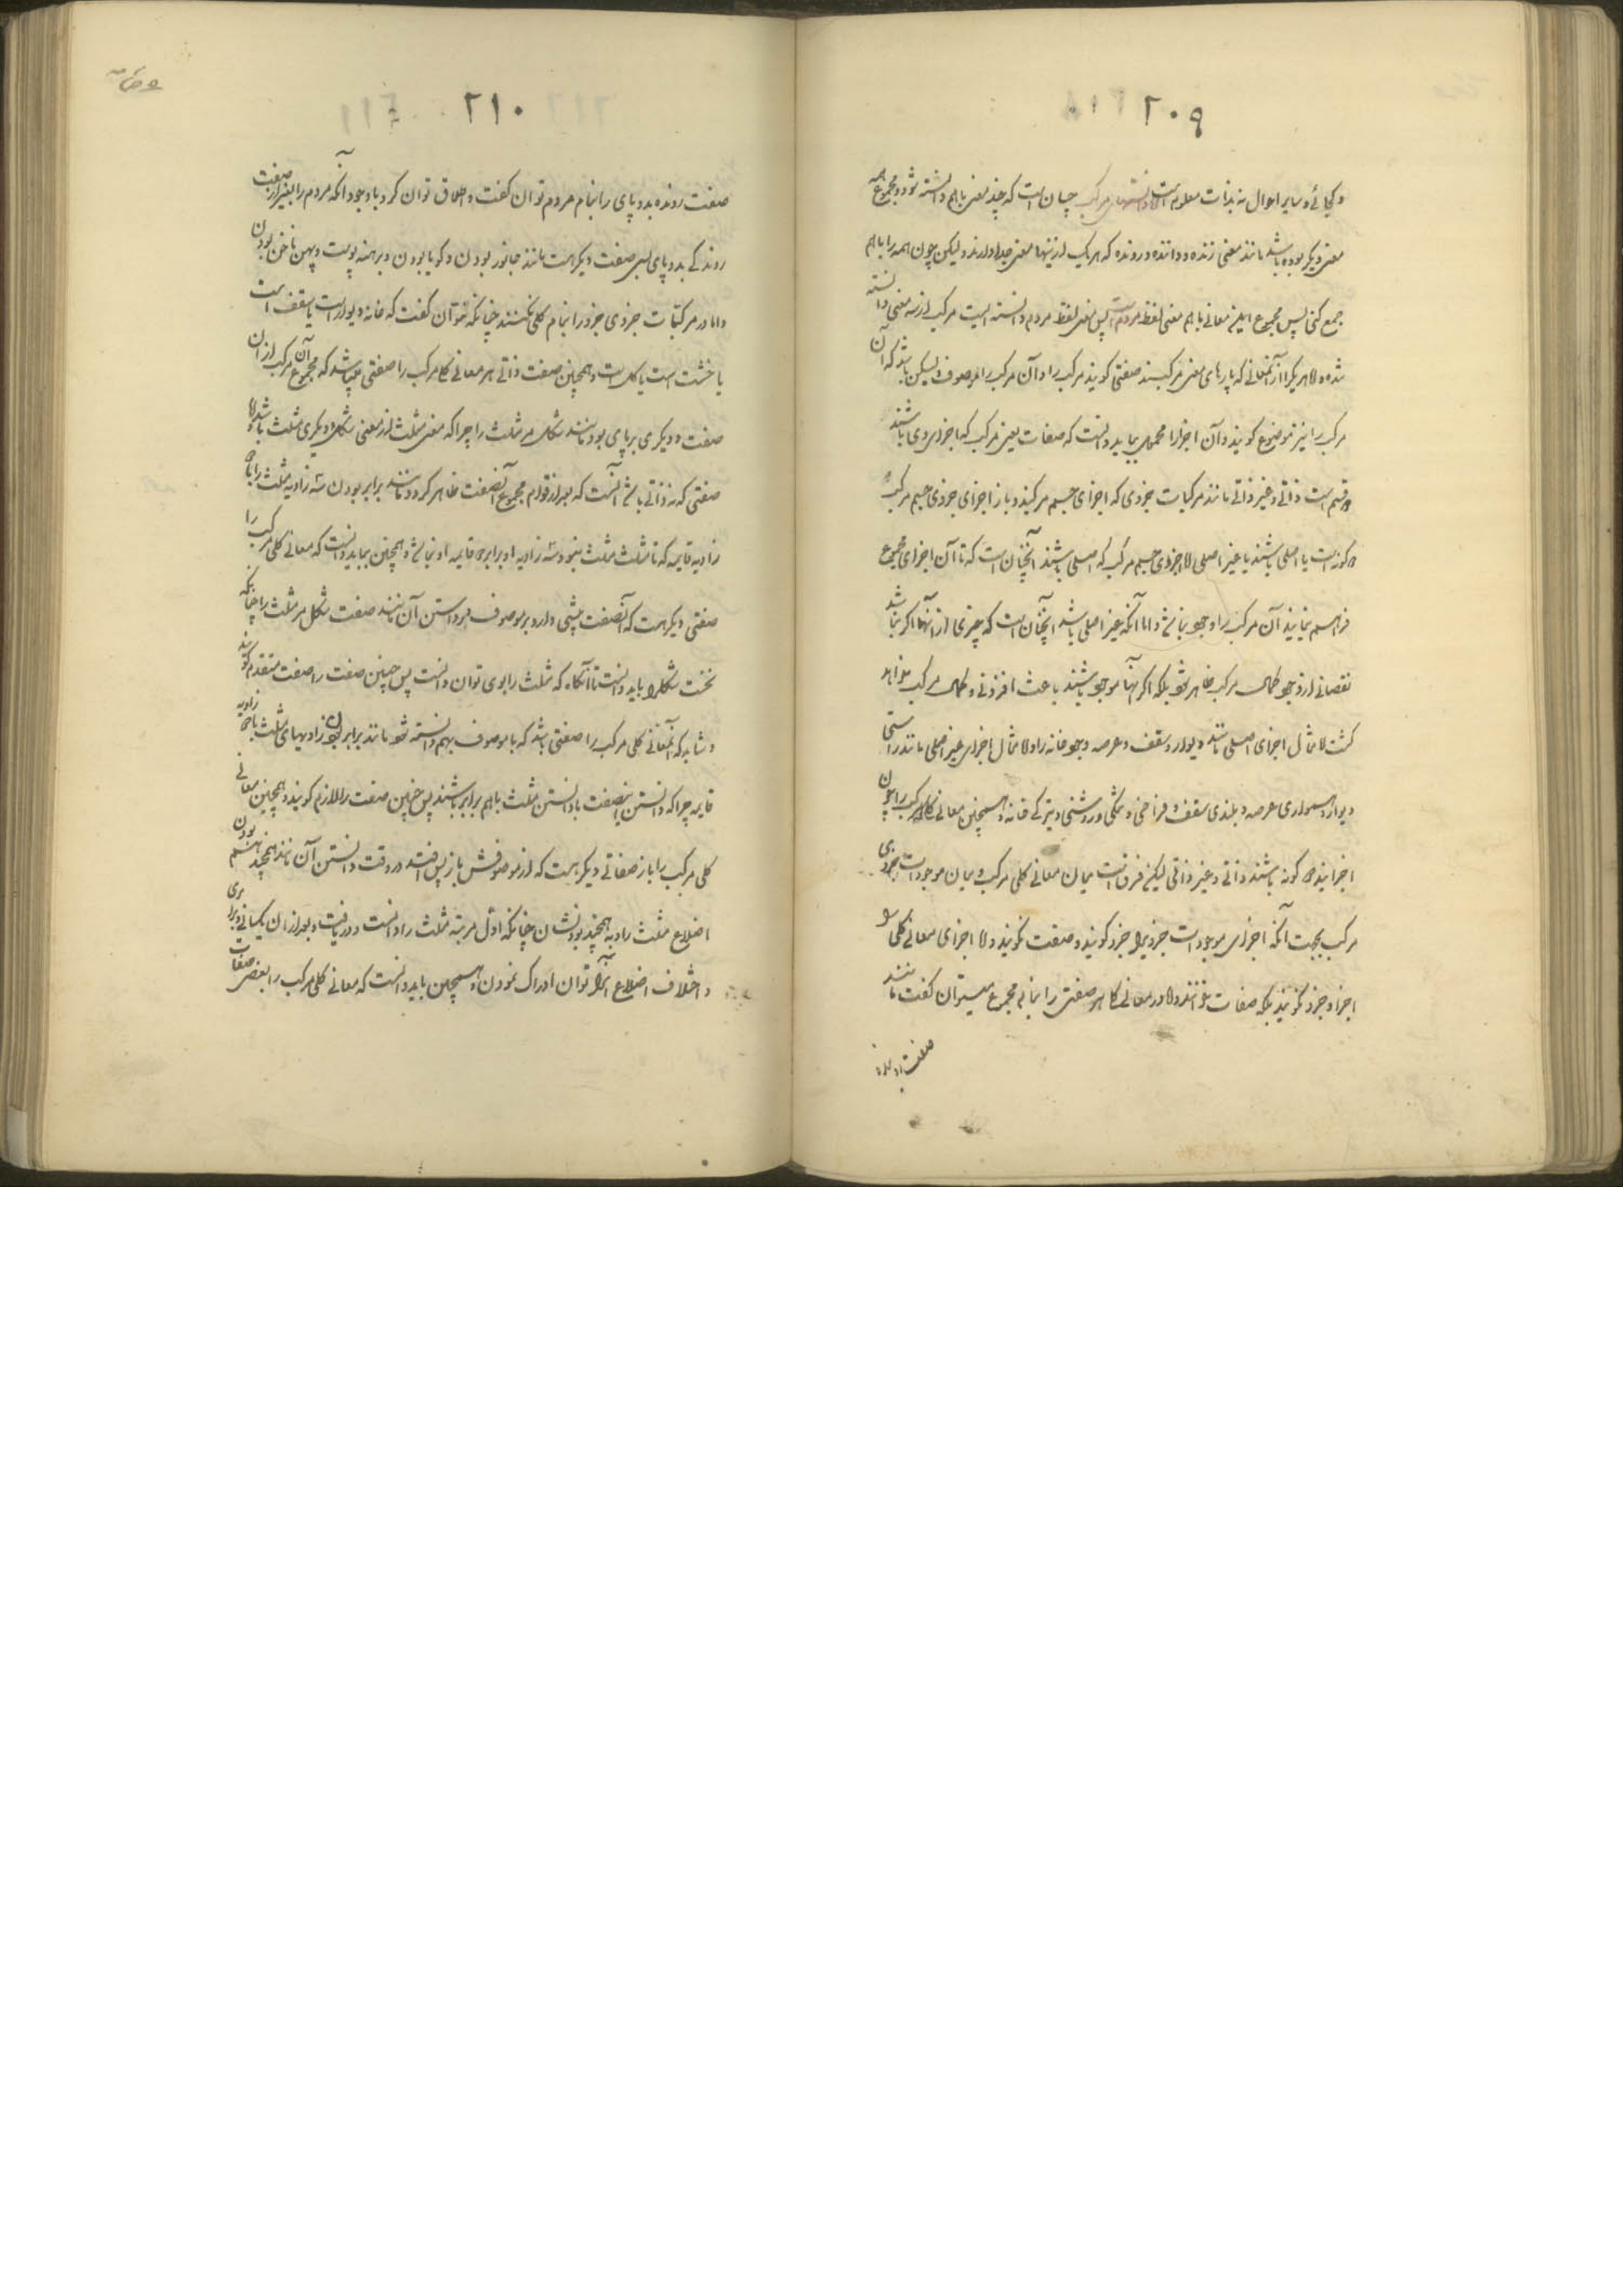 ۲۰۹
و یکجائی و سایر احوال نه بذات معلومست اما دانستهای مرکب چنان است که چند معنی باهم دانسته شود و مجموع همه
معنی دیگر بوده باشد مانند معنی زنده و داننده و رونده که هر یک از اینها معنی جدا دارند و لیکن چون همه را باهم
جمع کنی پس مجموع این معانی باهم معنی لفظ مردم است پس معنی لفظ مردم دانسته ایست مرکب از سه معنی دانسته
شده و اما هر یک را از آنمعانی که پارهای معنی مرکبند صفتی گویند مرکب را و آن مرکب را موصوف و لیکن باشد که آن
مرکب را نیز موضوع گویند و آن اجزا را محمول بباید دانست که صفات معنی مرکب که اجزای وی باشند
دو قسم است ذاتی و غیر ذاتی مانند مرکبات جزوی که اجزای جسم مرکبند و باز اجزای جزوی جسم مرکب
دو گونه است یا اصلی باشند یا غیر اصلی اما جزوی جسم مرکب که اصلی باشند آنچنان است که تا آن اجزای مجموع
فراهم نیایند آن مرکب را وجود نباشد و اما آنکه غیر اصلی باشد آنچنان است که چیزی از آنها اگر نباشد
نقصانی از وجود کمال مرکب ظاهر نشود بلکه اگر آنها موجود باشند باعث افزونی و کمال مرکب خواهد
گشت اما مثال اجزای اصلی مانند دیوار و سقف و عرصه وجود خانه را و اما مثال اجزای غیر اصلی مانند راستی
دیوار و همواری عرصه و بلندی سقف و فراخی و تنگی و روشنی و تیرگی خانه و همچنین معانی کلی مرکب را چون
اجزا نیز دو گونه باشند ذاتی و غیر ذاتی لیکن فرق است میان معانی کلی مرکب و میان موجودات جزوی
مرکب بجهت آنکه اجزای موجودات جزوی را جزو گویند و صفت نگویند و اما اجزای معانی کلی را
اجزا و جزو نگویند بلکه صفات خوانند و اما در معانی کلی هر صفتی را بنام مجموع میتوان گفت مانند
صفت رونده

۲۱۰
صفت رونده بدو پای را بنام مردم توان گفت و اطلاق توان کرد با وجود آنکه مردم را بغیر از صفت
روندگی بدو پای بسی صفت دیگر هست مانند جانور بودن و گویا بودن و برهنه پوست و پهن ناخن بودن
و اما در مرکبات جزوی جزو را بنام کلی نخوانند چنانکه نتوان گفت که خانه دیوار است یا سقف است
یا خشت است یا گل است و همچنین صفت ذاتی هر معانی کلی مرکب را صفتی میباشد که مجموع آن مرکب از آن
صفت و دیگری برپای بود مانند شکل مر مثلث را چرا که معنی مثلث از معنی شکل و دیگری مثلث باشد و اما
صفتی که نه ذاتی باشد آنست که بعد از قوام مجموع آنصفت ظاهر گردد مانند برابر بودن سه زاویه مثلث را با دو
زاویه قایمه که تا مثلث مثلث نبود سه زاویه او برابر دو قایمه او نباشد و همچنین بباید دانست که معانی کلی مرکب را
صفتی دیگر هست که آنصفت پیشی دارد بر موصوف در دانستن آن مانند صفت شکل مر مثلث را چنانکه
نخست شکل را باید دانست تا آنگاه که مثلث را بوی توان دانست پس چنین صفت را صفت متقدم گویند
و شاید که آنمعانی کلی مرکب را صفتی باشد که با موصوف بهم دانسته شود مانند برابر بودن زاویهای مثلث با دو زاویه
قایمه چرا که دانستن اینصفت با دانستن مثلث باهم برابر باشند پس چنین صفت را لازم گویند و همچنین معانی
کلی مرکب را باز صفاتی دیگر هست که از موصوفش باز پس افتد در وقت دانستن آن مانند همچند بودن هر سه
اضلاع مثلث را و نه همچند بودنشان چنانکه اول مرتبه مثلث را دانست و دریافت و بعد از آن یکسانی و برابری
و اختلاف اضلاع آنرا توان ادراک نمودن و همچنین باید دانست که معانی کلی مرکب را بعضی صفات